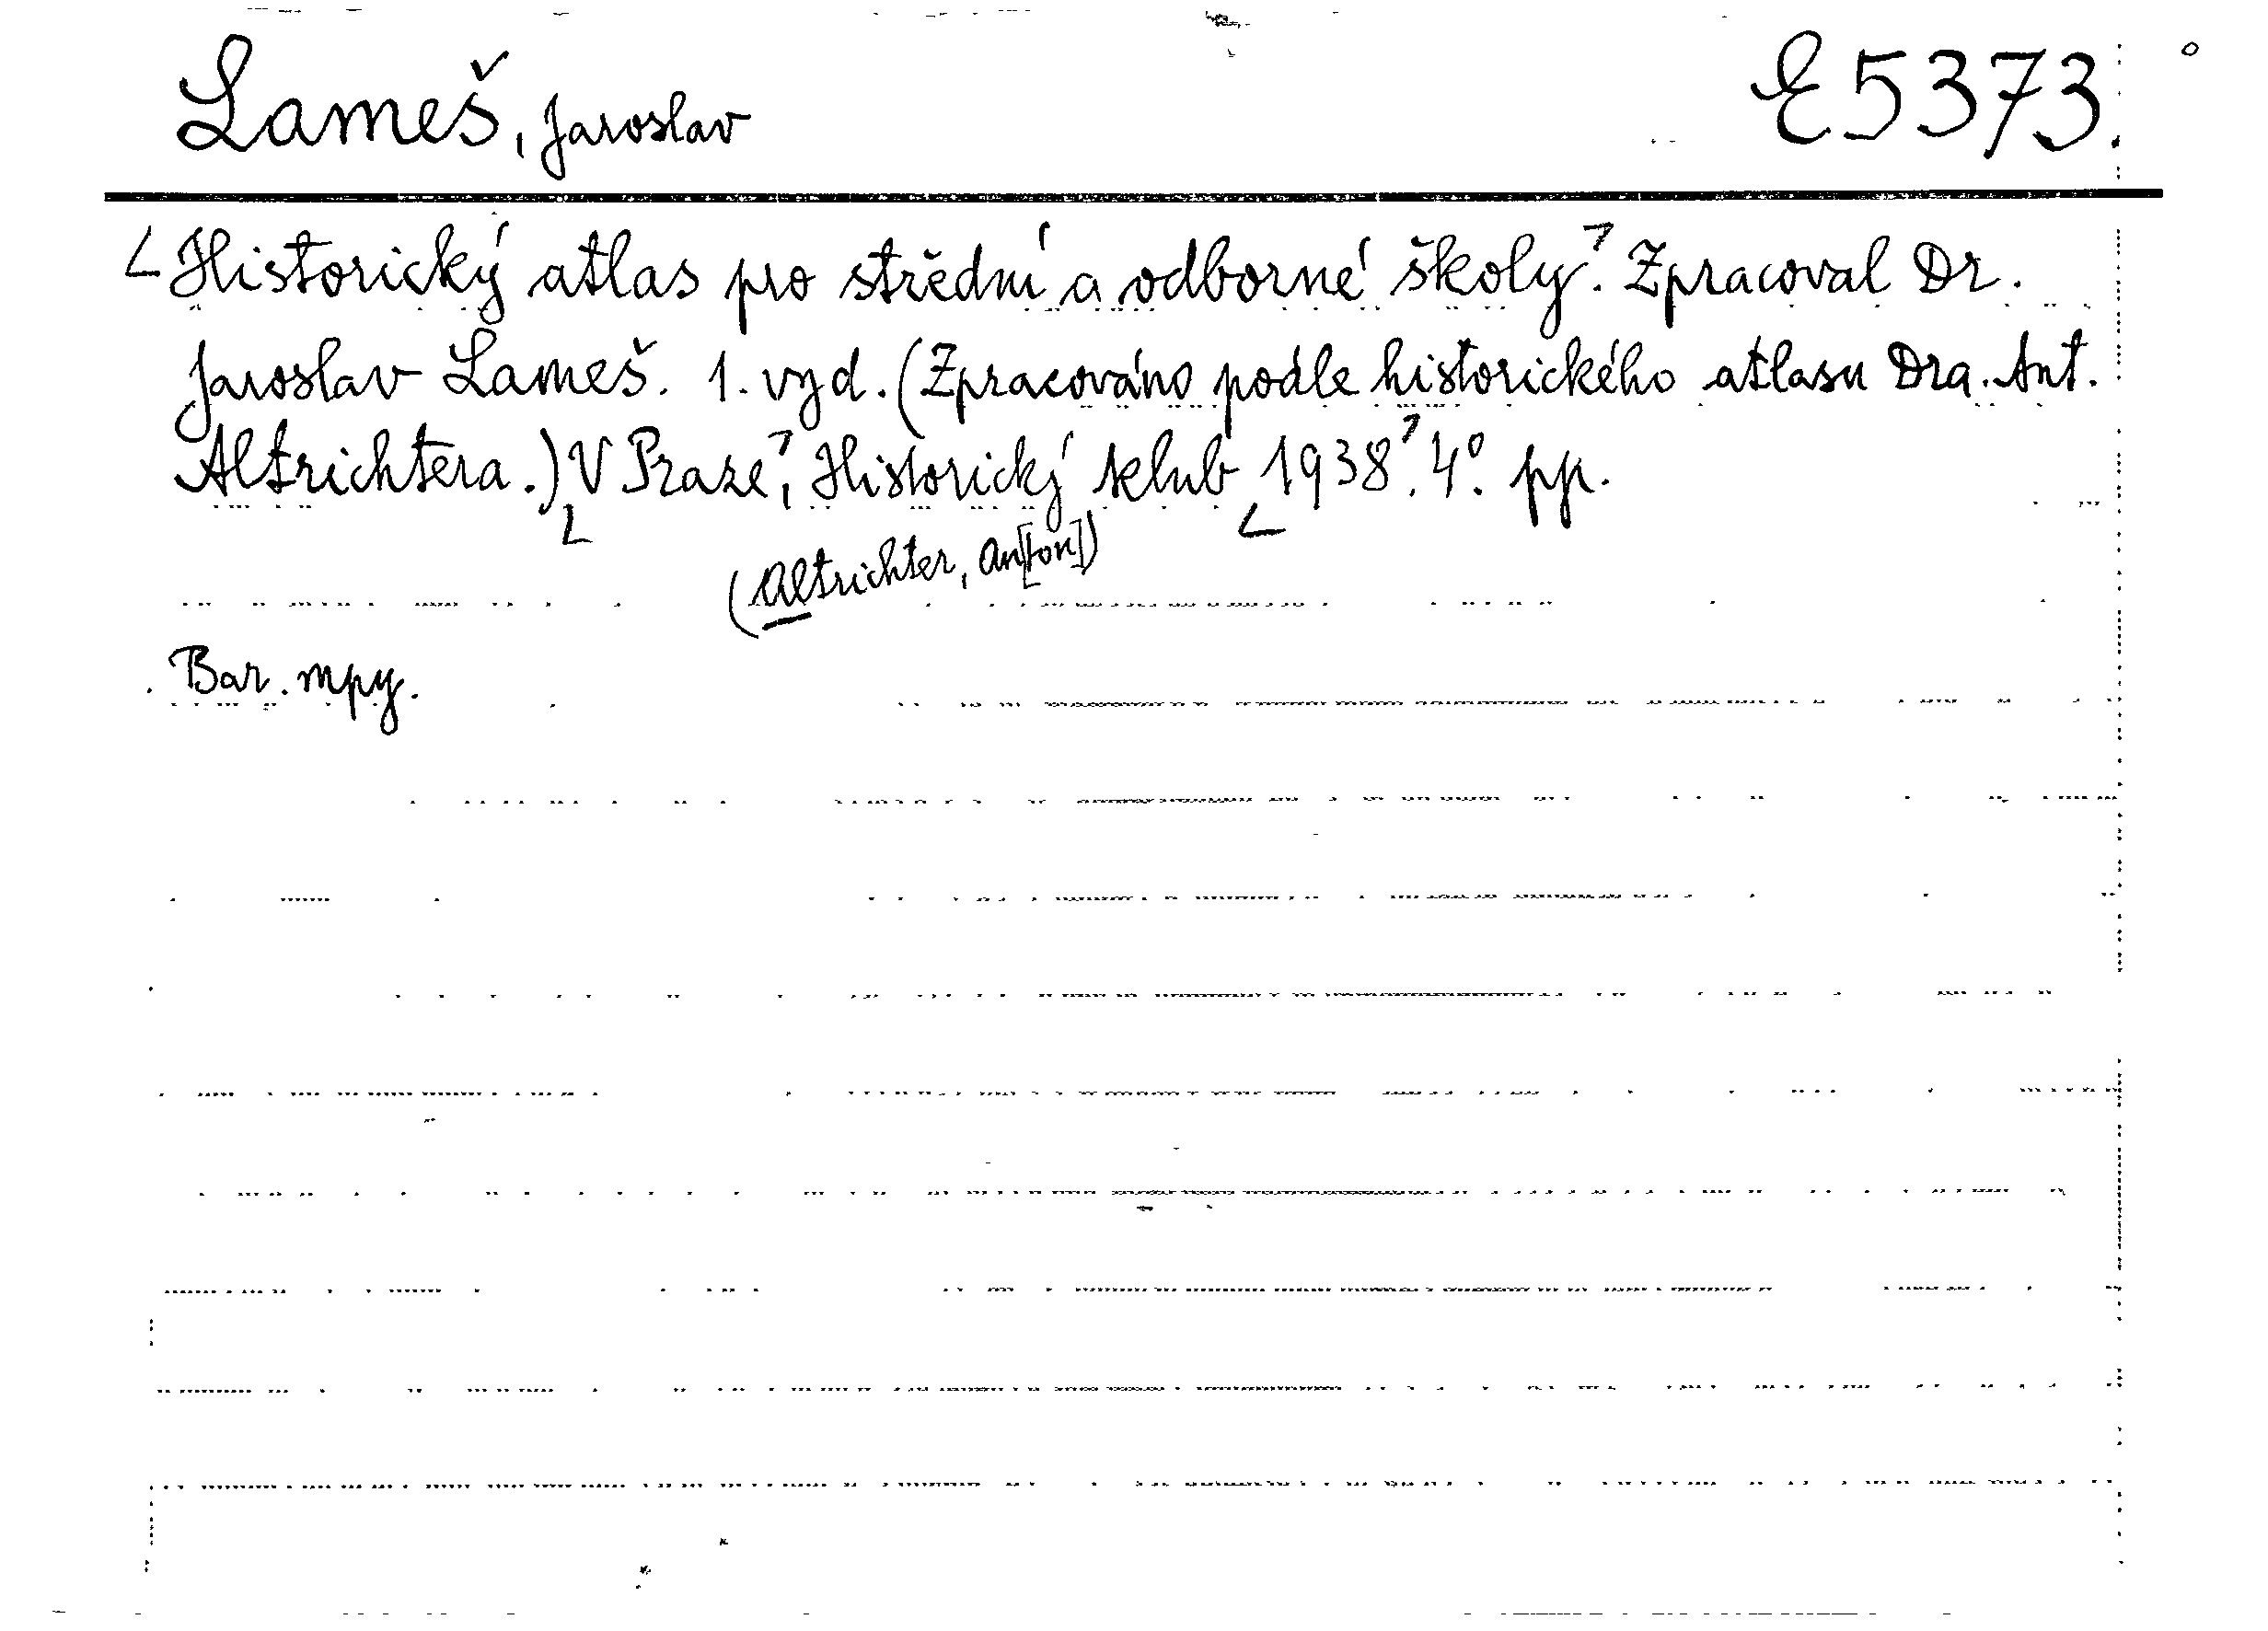 Lameš, Jaroslav
E 5373.
Historický atlas pro střední a odborné školy. Zpracoval Dr.
Jaroslav Lameš. 1. vyd. (Zpracováno podle historického atlasu Dra. Ant.
Altrichtera.) V Praze, Historický klub 1938. 4°. pp.
(Altrichter, An[ton])
Bar. mpy.